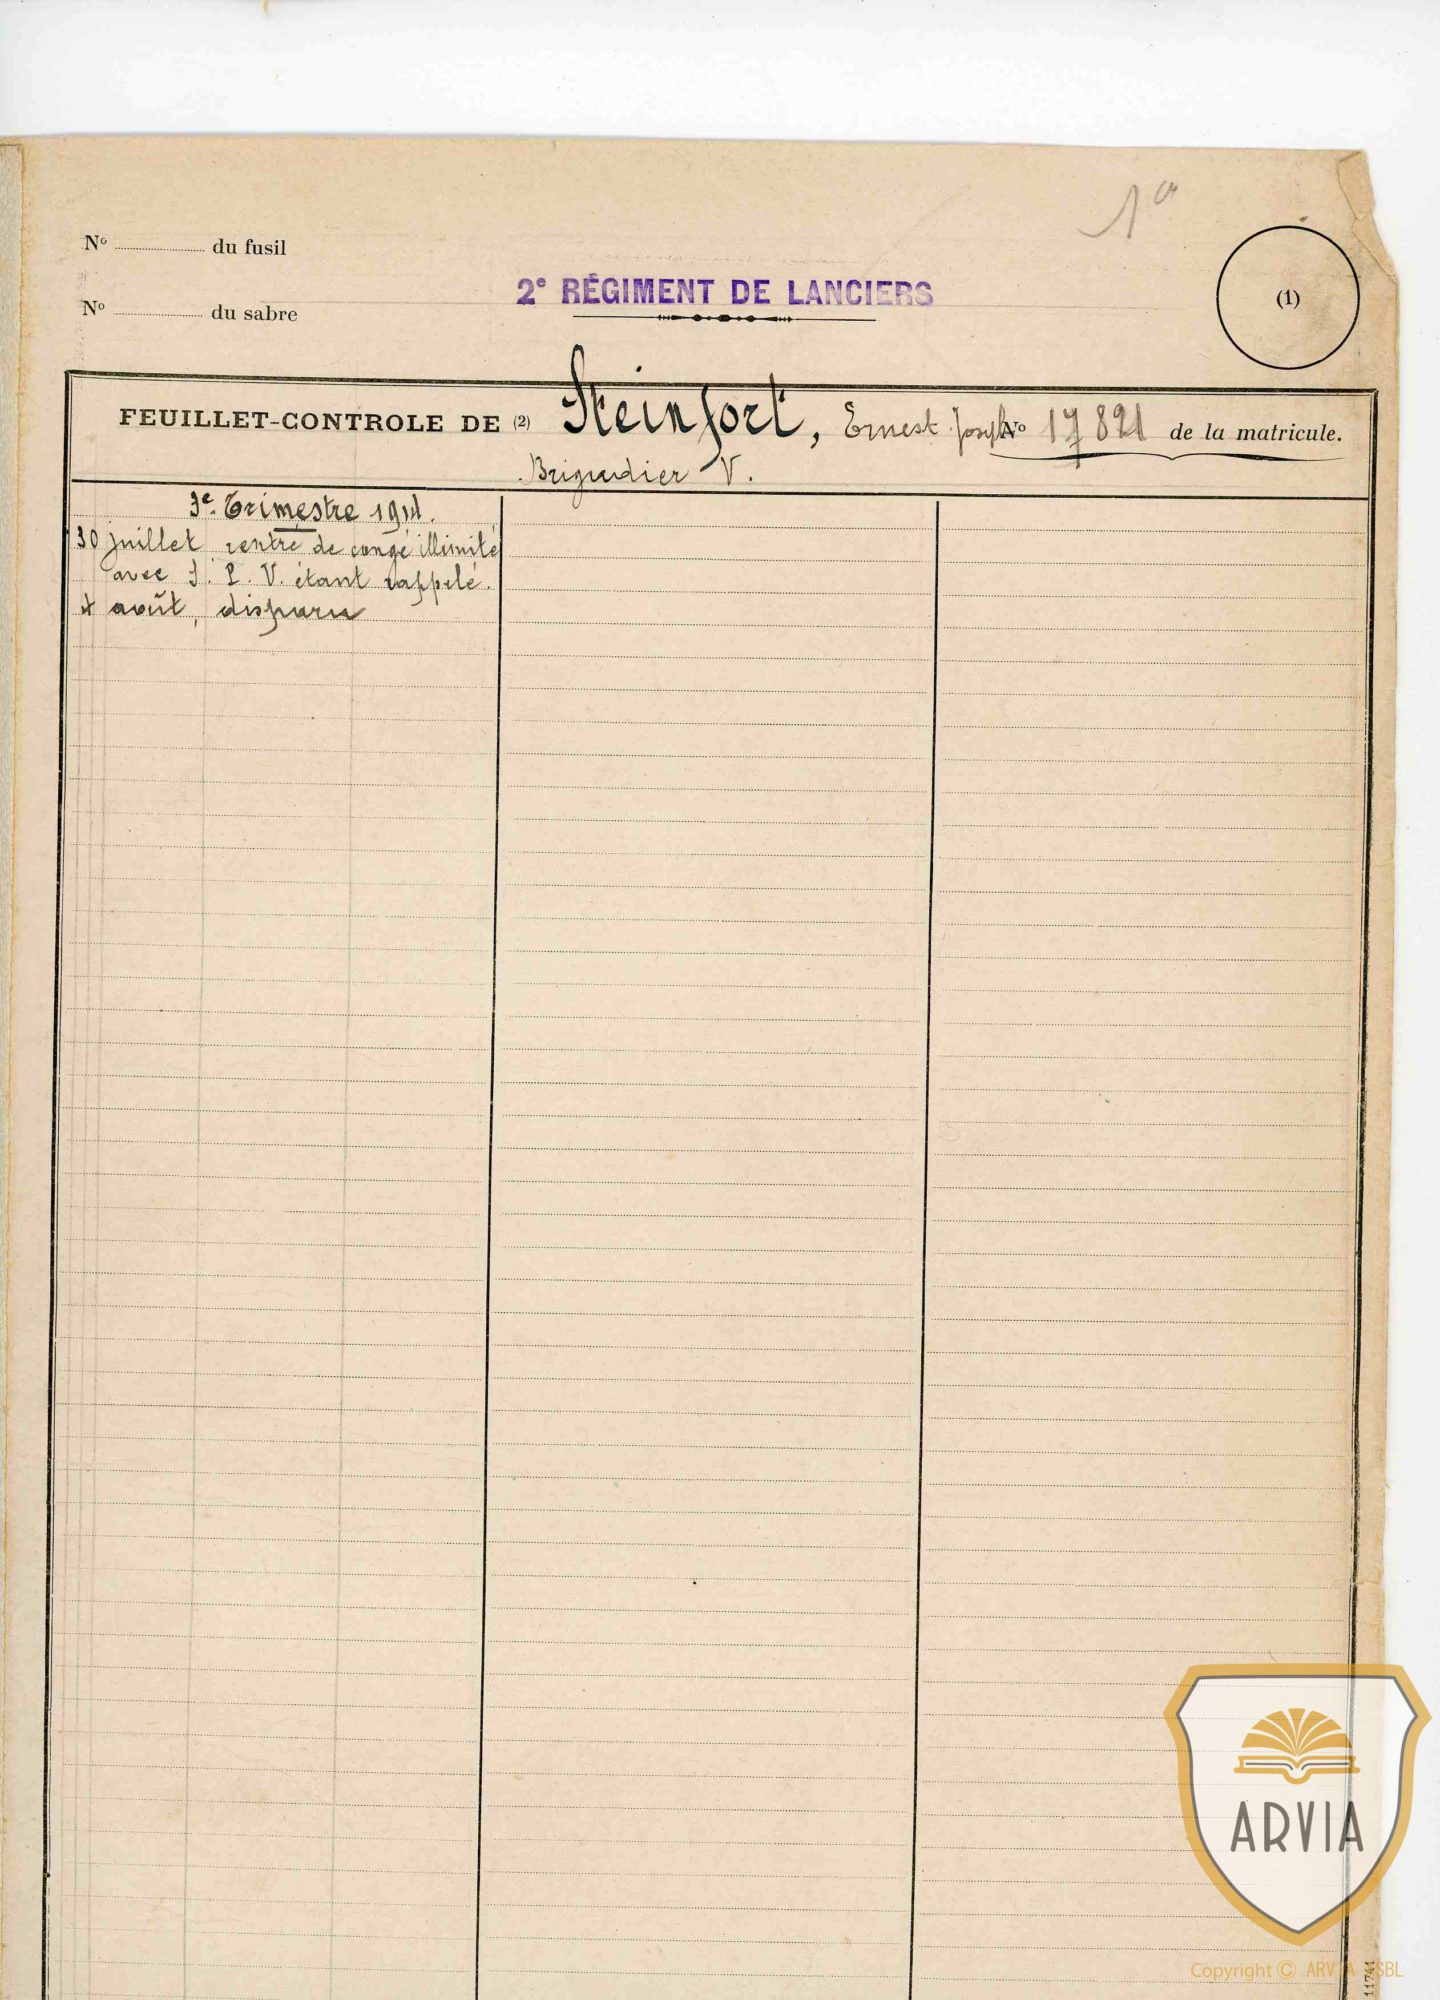 1a
Nº ............ du fusil
2e RÉGIMENT DE LANCIERS
(1)
Nº ............ du sabre
FEUILLET-CONTROLE DE (2) Steinfort, Ernest Joseph Nº 17821 de la matricule.
Brigadier V.
3e Trimestre 1914.
30 juillet rentré de congé illimité
avec S. P. V. étant rappelé.
4 août, disparu
ARVIA
Copyright © ARVIA ASBL
11741